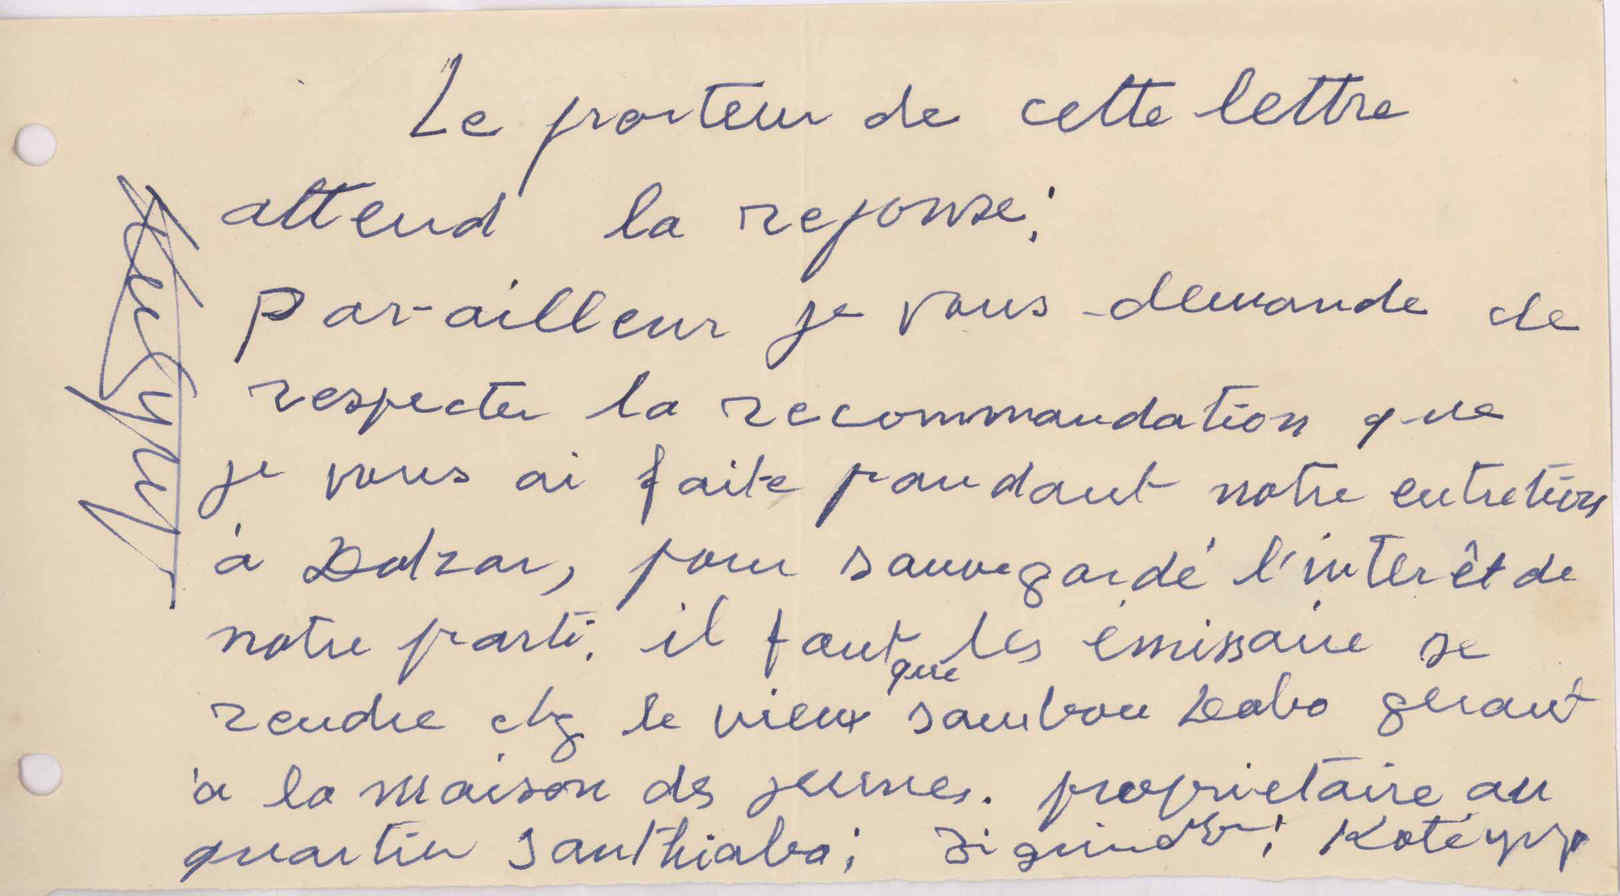 Le porteur de cette lettre
attend la reponse;
Par-ailleur je vous demande de
respecter la recommandation que
je vous ai faite pandant notre entretien
à Dakar, pour sauvegardé l'interêt de
notre parti. il faut que les émissaire se
rendre chz le vieux Sambou Dabo gerant
à la maison des jeunes. proprietaire au
quartier Santhiaba;